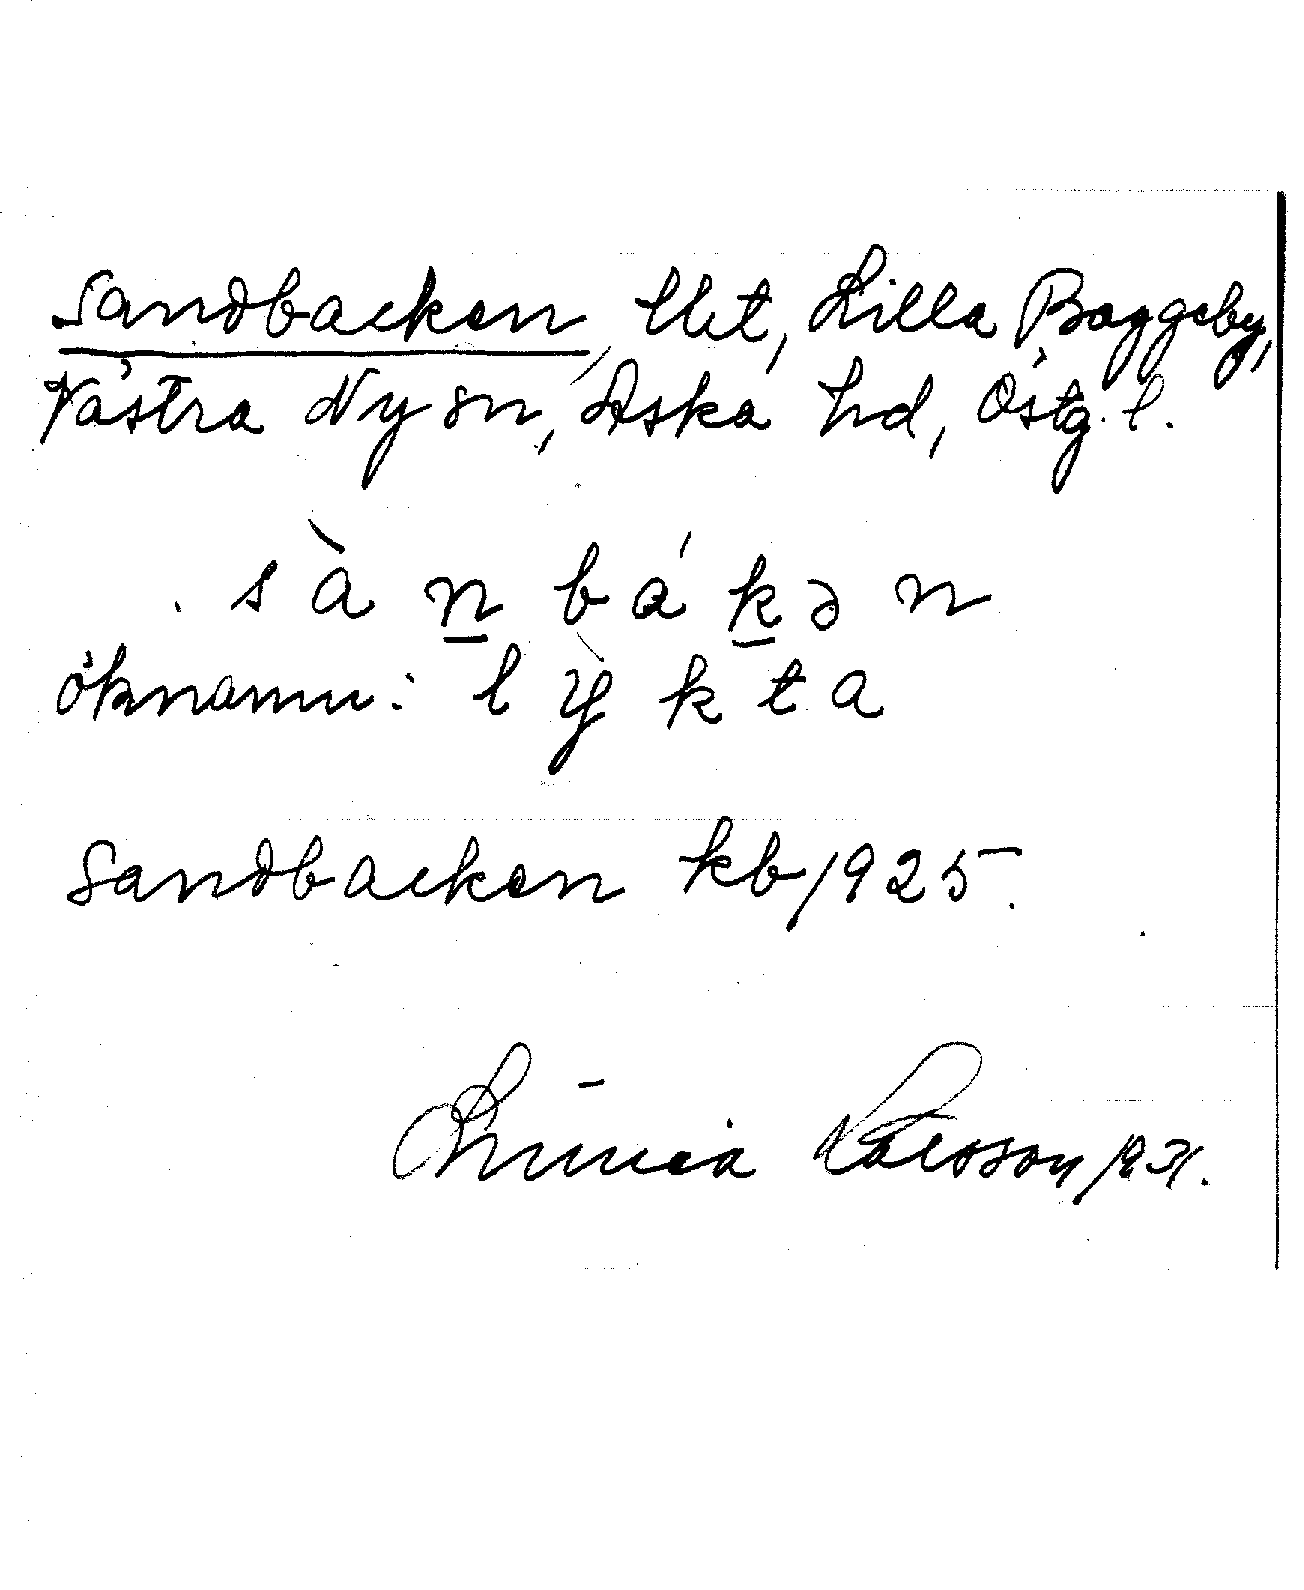 Sandbacken, lht, Lilla Baggeby,
Västra Ny sn, Aska hd, Östg. l.
sà n̲ bá k̲ ə n
öknamn: l ỳ k t a
Sandbacken kb 1925.
Linnea Larsson 1931.